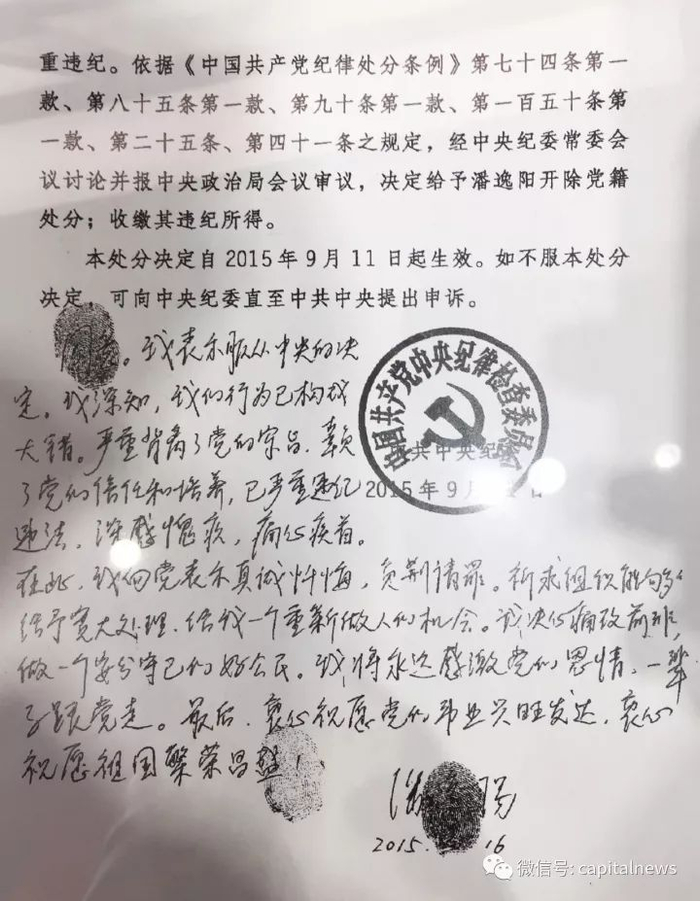 重违纪。依据《中国共产党纪律处分条例》第七十四条第一
款、第八十五条第一款、第九十条第一款、第一百五十条第
一款、第二十五条、第四十一条之规定，经中央纪委常委会
议讨论并报中央政治局会议审议，决定给予潘逸阳开除党籍
处分；收缴其违纪所得。
本处分决定自2015年9月11日起生效。如不服本处分
决定，可向中央纪委直至中共中央提出申诉。
。我表示服从中央的决
定。我深知，我的行为已构成
大错。严重背离了党的宗旨，辜负
了党的信任和培养，已严重违纪
违法，深感愧疚，痛心疾首。
中国共产党中央纪律检查委员会
共中央纪
2015年9月 日
在此，我向党表示真诚忏悔，负荆请罪。祈求组织能够
给予宽大处理，给我一个重新做人的机会。我决心痛改前非，
做一个安分守己的好公民。我将永远感激党的恩情，一辈
子跟党走。最后，衷心祝愿党的事业兴旺发达，衷心
祝愿祖国繁荣昌盛！
潘 阳
2015. 16
微信号: capitalnews